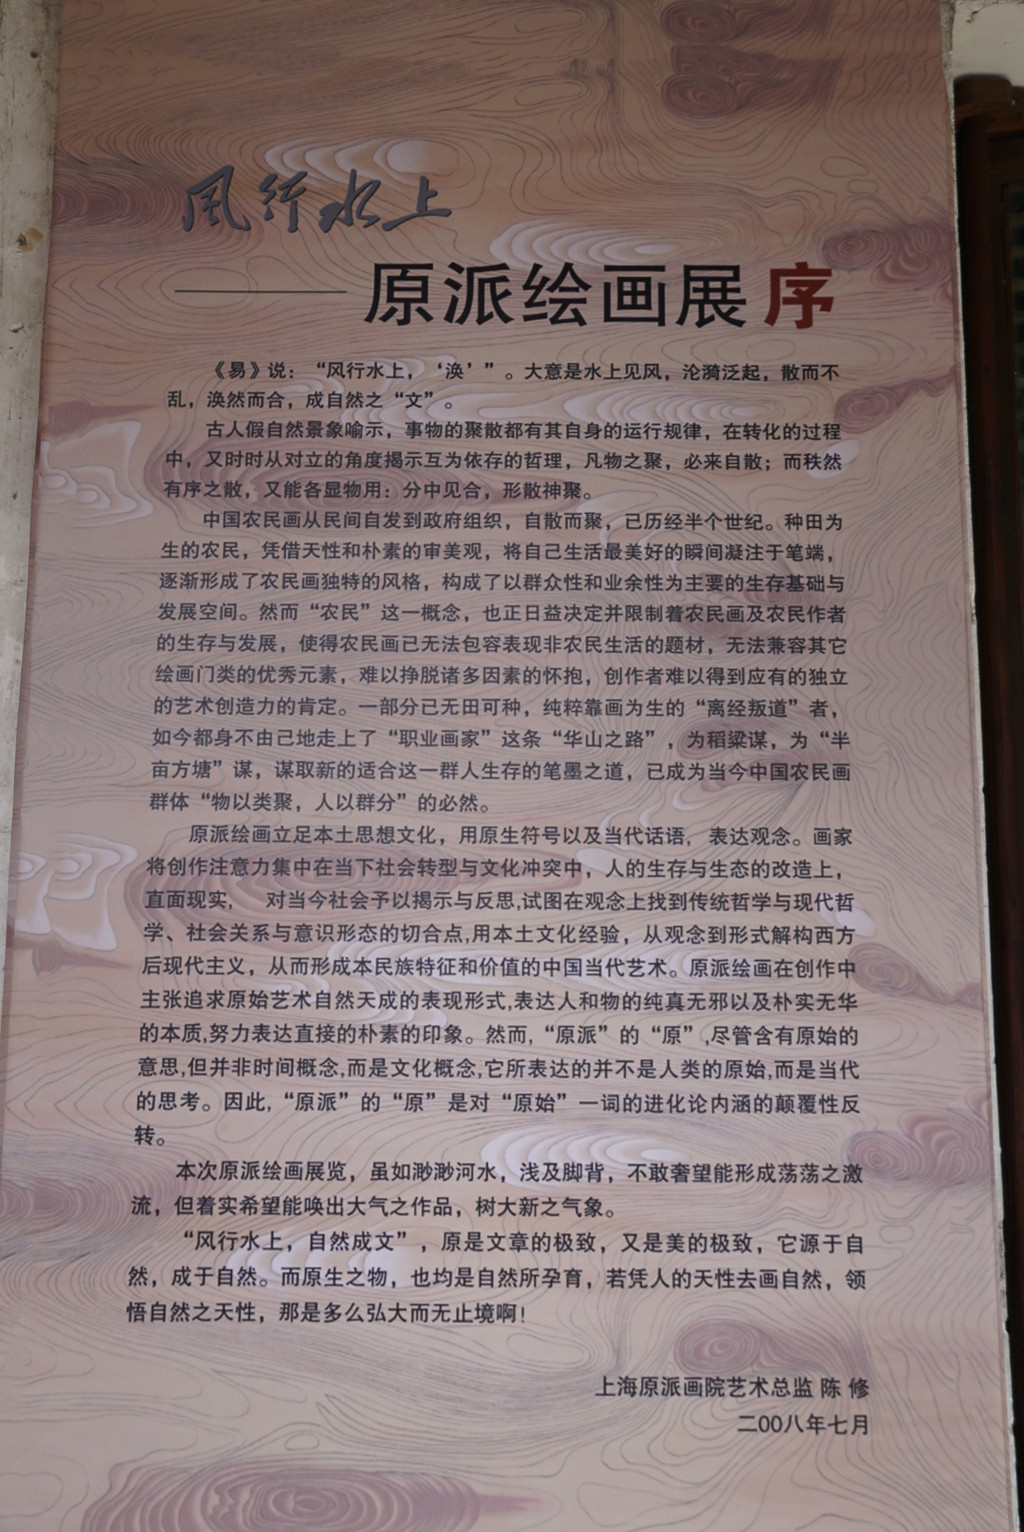 风行水上
——原派绘画展序
《易》说：“风行水上，‘涣’”。大意是水上见风，沦漪泛起，散而不
乱，涣然而合，成自然之“文”。
古人假自然景象喻示，事物的聚散都有其自身的运行规律，在转化的过程
中，又时时从对立的角度揭示互为依存的哲理，凡物之聚，必来自散；而秩然
有序之散，又能各显物用：分中见合，形散神聚。
中国农民画从民间自发到政府组织，自散而聚，已历经半个世纪。种田为
生的农民，凭借天性和朴素的审美观，将自己生活最美好的瞬间凝注于笔端，
逐渐形成了农民画独特的风格，构成了以群众性和业余性为主要的生存基础与
发展空间。然而“农民”这一概念，也正日益决定并限制着农民画及农民作者
的生存与发展，使得农民画已无法包容表现非农民生活的题材，无法兼容其它
绘画门类的优秀元素，难以挣脱诸多因素的怀抱，创作者难以得到应有的独立
的艺术创造力的肯定。一部分已无田可种，纯粹靠画为生的“离经叛道”者，
如今都身不由己地走上了“职业画家”这条“华山之路”，为稻粱谋，为“半
亩方塘”谋，谋取新的适合这一群人生存的笔墨之道，已成为当今中国农民画
群体“物以类聚，人以群分”的必然。
原派绘画立足本土思想文化，用原生符号以及当代话语，表达观念。画家
将创作注意力集中在当下社会转型与文化冲突中，人的生存与生态的改造上，
直面现实，　对当今社会予以揭示与反思,试图在观念上找到传统哲学与现代哲
学、社会关系与意识形态的切合点,用本土文化经验，从观念到形式解构西方
后现代主义，从而形成本民族特征和价值的中国当代艺术。原派绘画在创作中
主张追求原始艺术自然天成的表现形式,表达人和物的纯真无邪以及朴实无华
的本质,努力表达直接的朴素的印象。然而,“原派”的“原”,尽管含有原始的
意思,但并非时间概念,而是文化概念,它所表达的并不是人类的原始,而是当代
的思考。因此,“原派”的“原”是对“原始”一词的进化论内涵的颠覆性反
转。
本次原派绘画展览，虽如渺渺河水，浅及脚背，不敢奢望能形成荡荡之激
流，但着实希望能唤出大气之作品，树大新之气象。
“风行水上，自然成文”，原是文章的极致，又是美的极致，它源于自
然，成于自然。而原生之物，也均是自然所孕育，若凭人的天性去画自然，领
悟自然之天性，那是多么弘大而无止境啊！
上海原派画院艺术总监 陈 修
二00八年七月